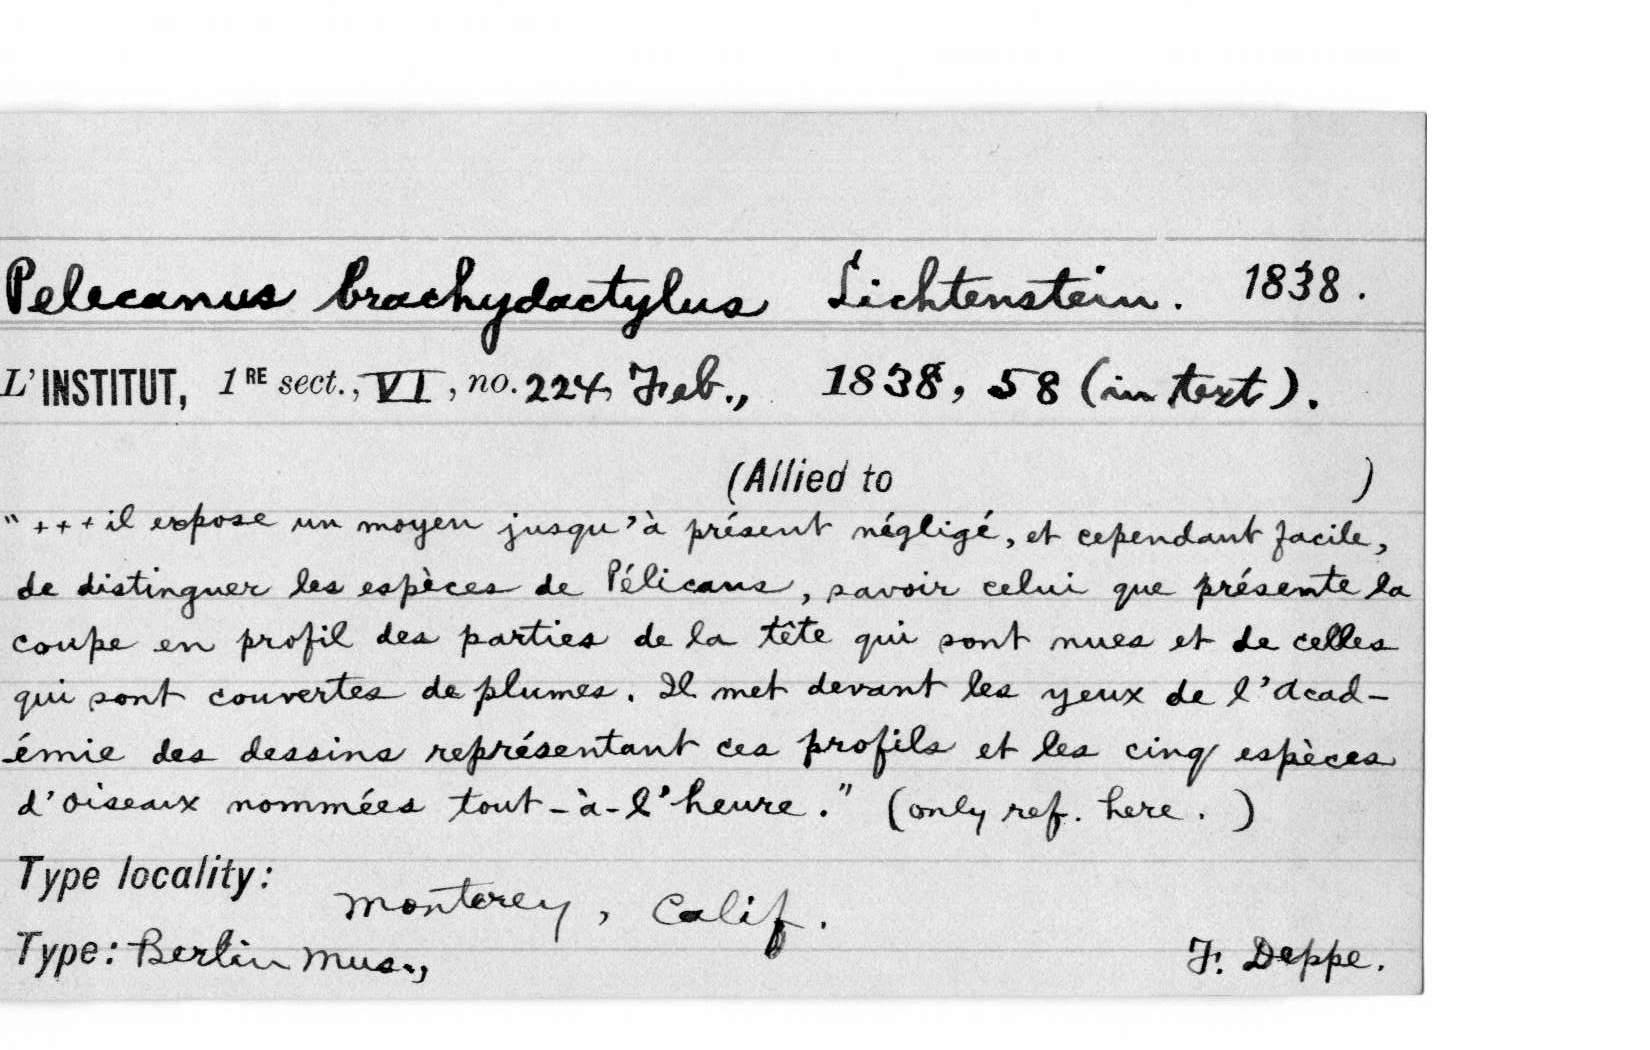 Pelecanus brachydactylus Lichtenstein. 1838.
L'INSTITUT, 1RE sect., VI, no. 224, Feb., 1838, 58 (in text).
(Allied to )
"+++il expose un moyen jusqu'à présent négligé, et cependant facile,
de distinguer les espèces de Pélicans, savoir celui que présente la
coupe en profil des parties de la tête qui sont nues et de celles
qui sont couvertes de plumes. Il met devant les yeux de l'Acad-
émie des dessins représentant ces profils et les cinq espèces
d'oiseaux nommées tout-à-l'heure." (only ref. here.)
Type locality: Monterey, Calif.
Type: Berlin Mus., F. Deppe.